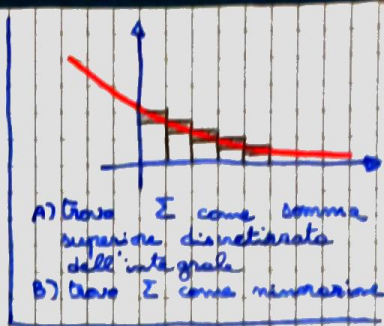 A) trovo Σ come somma
superiore discretizzata
dell'integrale
B) trovo Σ come minorazione